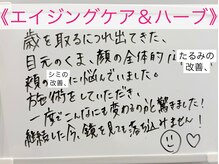 《エイジングケア＆ハーブ》
歳を取るにつれ出てきた、
目元のくま、顔の全体的な
たるみの改善、
頬の
シミの改善、
に悩んでいました。
施術をしていただき、
一度でこんなにも変わるのかと驚きました！
継続した今、鏡を見ても落ち込みません！